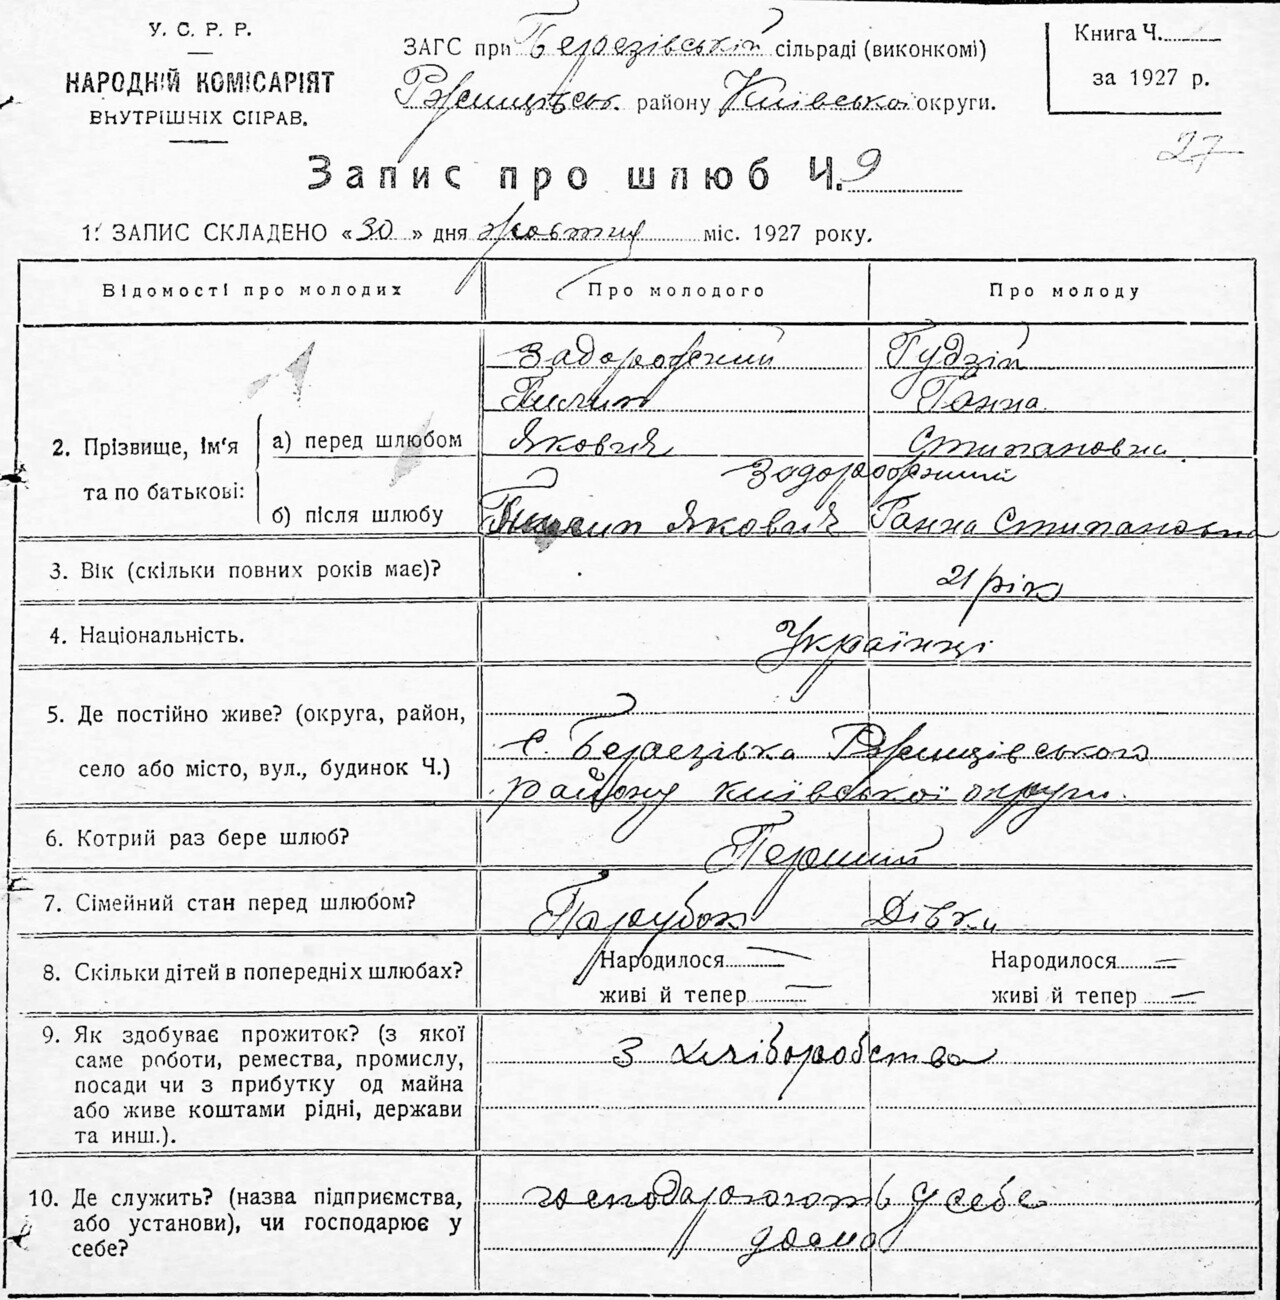 У. С. Р. Р.
НАРОДНІЙ КОМІСАРІЯТ
ВНУТРІШНІХ СПРАВ.
ЗАГС при Березівській сільраді (виконкомі)
Ржищівськ. району Київської округи.
Книга Ч.
за 1927 р.
27
Запис про шлюб Ч. 9
1. ЗАПИС СКЛАДЕНО «30» дня жовтня міс. 1927 року.
Відомості про молодих Про молодого Про молоду
2. Прізвище, ім'я та по батькові:
а) перед шлюбом
Задорожний Гудзій
Пилип Ганна
Якович Стипановна
б) після шлюбу
Задорожний
Пилип Якович Ганна Стипановна
3. Вік (скільки повних років має)? 21 рік
4. Національність. Українці
5. Де постійно живе? (округа, район,
село або місто, вул., будинок Ч.)
с. Березівка Ржищівського
району київської округи.
6. Котрий раз бере шлюб? Перший
7. Сімейний стан перед шлюбом? Парубок Дівка
8. Скільки дітей в попередніх шлюбах?
Народилося — Народилося —
живі й тепер — живі й тепер —
9. Як здобуває прожиток? (з якої
саме роботи, ремества, промислу,
посади чи з прибутку од майна
або живе коштами рідні, держави
та инш.).
З хліборобства
10. Де служить? (назва підприємства,
або установи), чи господарює у
себе?
господарюють у себе
дома